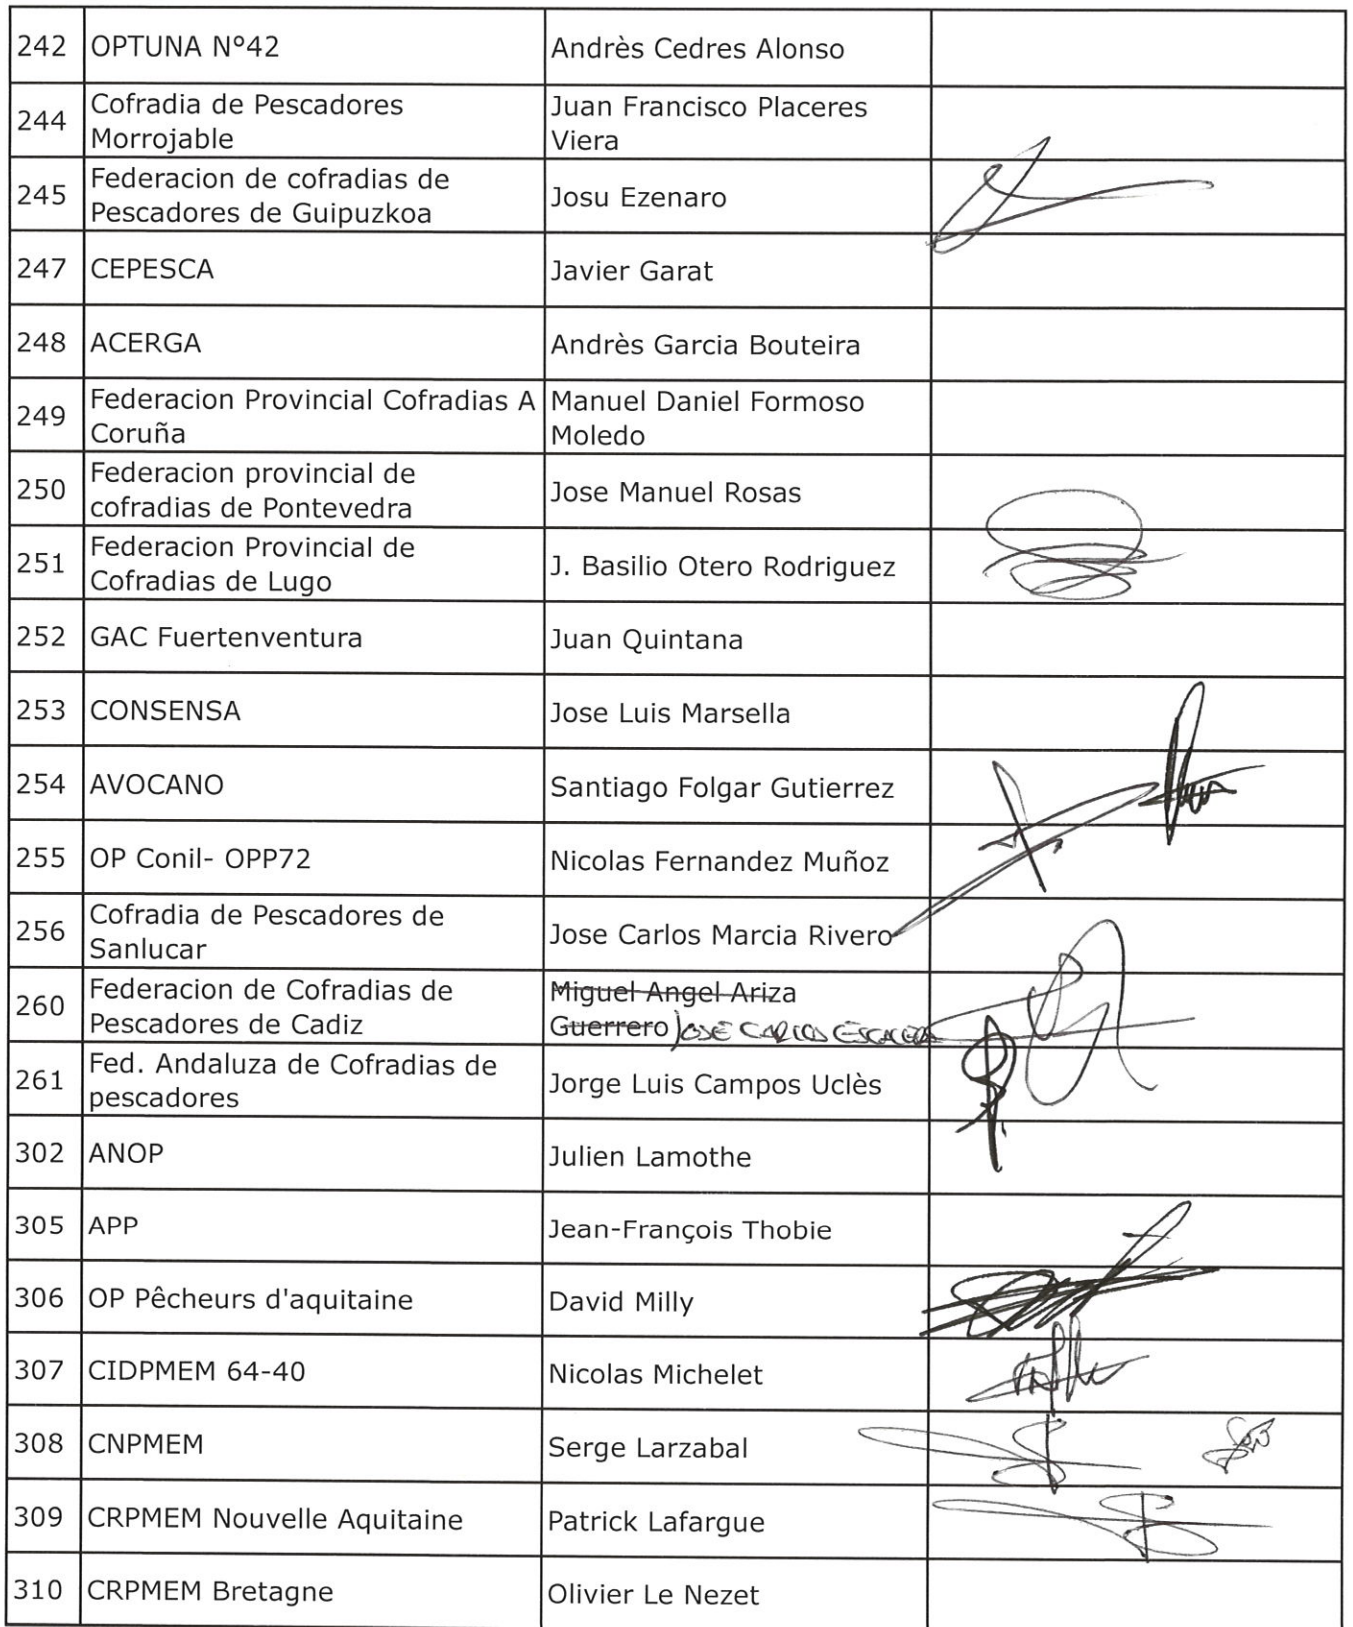 242 OPTUNA N°42 Andrès Cedres Alonso
244 Cofradia de Pescadores Morrojable Juan Francisco Placeres Viera
245 Federacion de cofradias de Pescadores de Guipuzkoa Josu Ezenaro
247 CEPESCA Javier Garat
248 ACERGA Andrès Garcia Bouteira
249 Federacion Provincial Cofradias A Coruña Manuel Daniel Formoso Moledo
250 Federacion provincial de cofradias de Pontevedra Jose Manuel Rosas
251 Federacion Provincial de Cofradias de Lugo J. Basilio Otero Rodriguez
252 GAC Fuertenventura Juan Quintana
253 CONSENSA Jose Luis Marsella
254 AVOCANO Santiago Folgar Gutierrez
255 OP Conil- OPP72 Nicolas Fernandez Muñoz
256 Cofradia de Pescadores de Sanlucar Jose Carlos Marcia Rivero
260 Federacion de Cofradias de Pescadores de Cadiz Miguel Angel Ariza Guerrero JOSE CARLOS ESCALERA
261 Fed. Andaluza de Cofradias de pescadores Jorge Luis Campos Uclès
302 ANOP Julien Lamothe
305 APP Jean-François Thobie
306 OP Pêcheurs d'aquitaine David Milly
307 CIDPMEM 64-40 Nicolas Michelet
308 CNPMEM Serge Larzabal
309 CRPMEM Nouvelle Aquitaine Patrick Lafargue
310 CRPMEM Bretagne Olivier Le Nezet